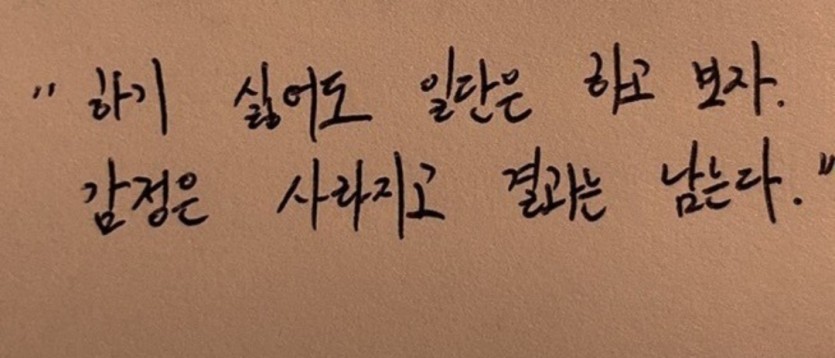 " 하기 싫어도 일단은 하고 보자.
감정은 사라지고 결과는 남는다."